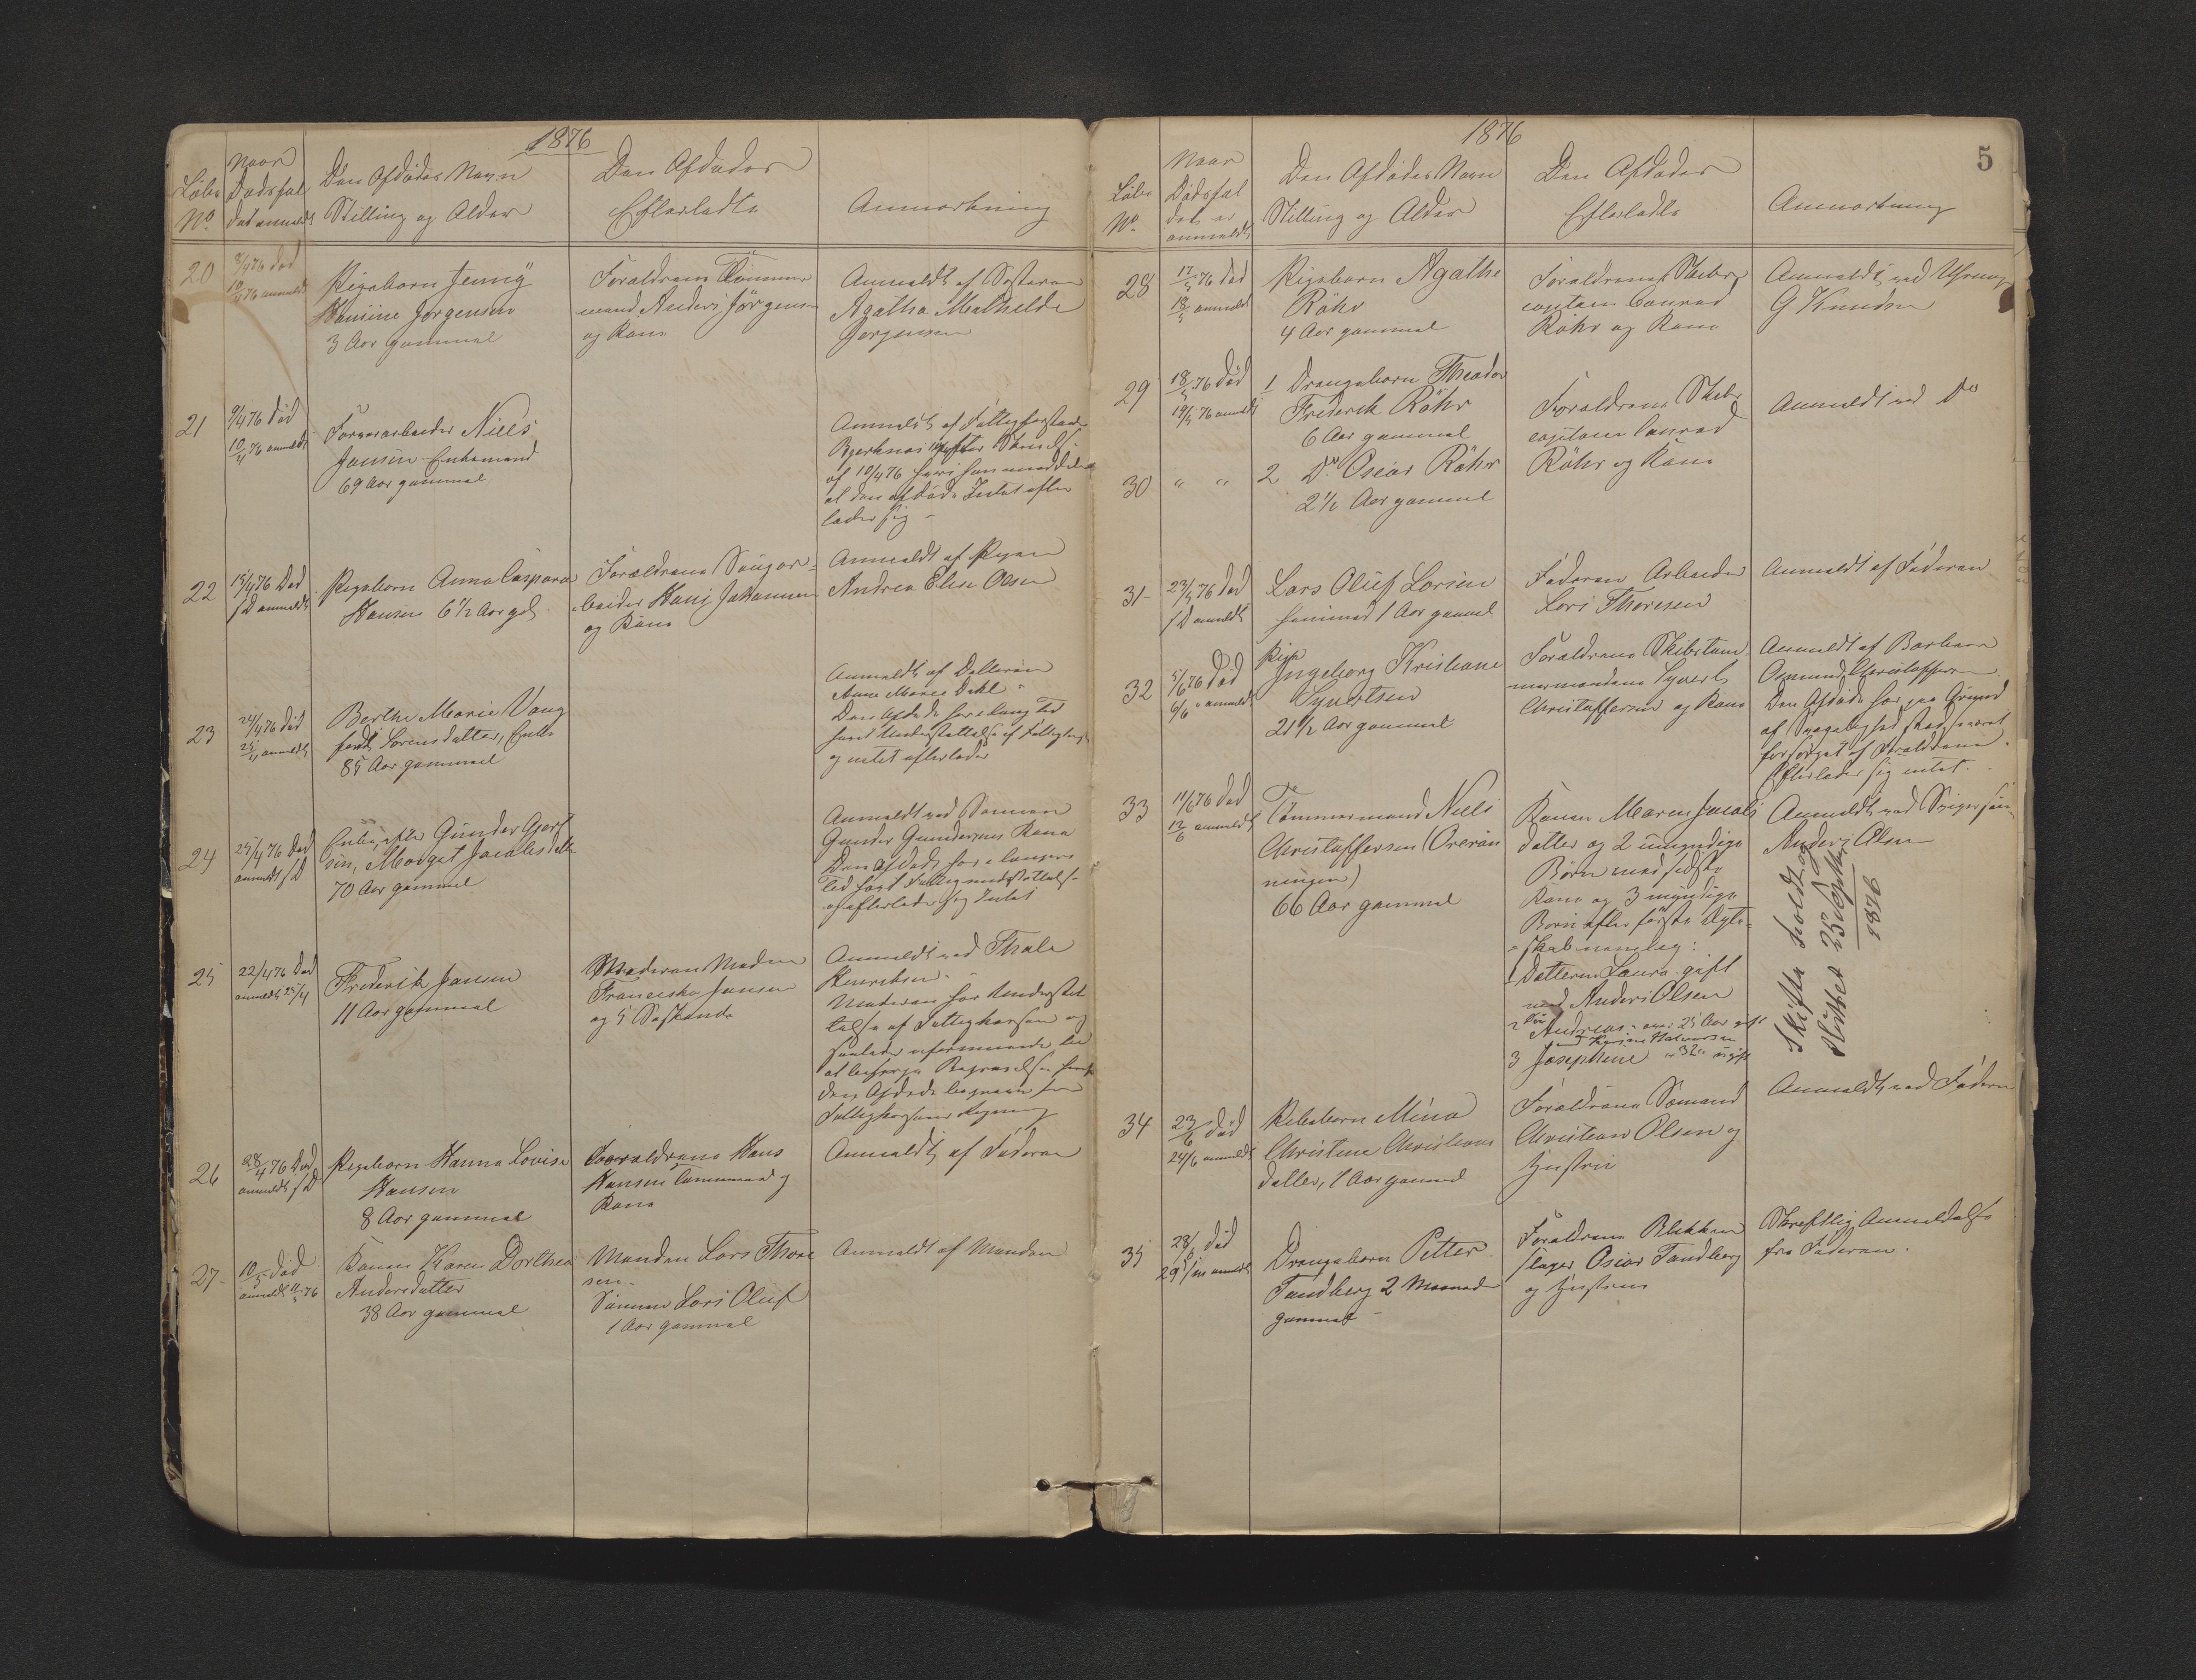 1876
Løbe
No
Naar
Dødsfal
det anmeldt
Den Afdødes Navn
Stilling og Alder
Den Afdødes
Efterladte
Anmærkning
20
9/4 76 død
10/4 76 anmeldt
Pigebarn Jenny
Hansine Jørgensen
3 Aar gammel
Forældrene Tømmer
mand Anders Jörgensen
og Kone
Anmeldt af Søsteren
Agatha Mathilde
Jørgensen
21
9/4 76 død
10/4 76 anmeldt
Niels
Jansen Enkemand
69 Aar gammel
Anmeldt af Fattigforstander
af 10/4 76 hvori han meddeler
at den afdøde Intet efter
lader sig
22
15/4 76 Død
s D anmeldt
Pigebarn Anna Caspara
Hansen 6 1/2 Aar gl
Forældrene Saugar-
beider Hans Johannesen
og Kone
Anmeldt af Pigen
Andrea Elise Olsen
23
24/4 76 død
25/4 anmeldt
Berthe Marie Vang
født Lorensdatter, Enke
85 Aar gammel
Anmeldt af Datteren
Anne Marie Dahl
Den Afdøde har i lang Tid
havt Understøttelse af Fattigkassen
og intet efterlader
24
25/4 76 Død
anmeldt s D
Enke efter Gunder Gjert
sen, Margit Jacobsdatter
70 Aar gammel
Anmeldt ved Sønnen
Gunder Gundersens Kone
Den Afdøde har i længere
Tid havt Fattigunderstøttelse
og efterlader sig Intet
25
22/4 76 Død
anmeldt 25/4
Frederik Jansen
11 Aar gammel
Moderen Madam
Franciska Jansen
og 5 Søskende
Anmeldt ved Thale
Henriksen.
Moderen har Understøt
telse af Fattigkassen og
saaledes uformuende til
at besørge Begravelsen hvorfor
den Afdøde begraves for
Fattigkassens Regning
26
28/4 76 Død
anmeldt s D
Pigebarn Hanna Lovise
Hansen
8 Aar gammel
Forældrene Hans
Hansen Tømmermand og
Kone
Anmeldt af Faderen
27
10/5 død
anmeldt 11/5 76
Konen Karen Dorthea
Andersdatter
38 Aar gammel
Manden Lars Thore
sen.
Sønnen Lars Oluf
1 Aar gammel
Anmeldt af Manden
1876
5
Løbe
No
Naar
Dødsfal
det er
anmeldt
Den Afdødes Navn
Stilling og Alder
Den Afdødes
Efterladte
Anmærkning
28
17/5 76 død
18/5 anmeldt
Pigebarn Agathe
Röhr
4 Aar gammel
Forældrene Skibs
capitain Conrad
Röhr og Kone
Anmeldt ved
G Knudsen
29
18/5 76 død
19/5 76 anmeldt
1 Drengebarn Theodor
Frederik Röhr
6 Aar gammel
Forældrene Skibs
capitain Conrad
Röhr og Kone
Anmeldt ved Do
30
" "
2 Do Oscar Röhr
2 1/2 Aar gammel
31
23/5 76 død
s D anmeldt
Lars Oluf Larsen
1 Aar gammel
Faderen Arbeider
Lars Thoresen
Anmeldt af Faderen
32
5/6 76 Død
6/6 anmeldt
Pige
Ingeborg Kristiane
Syvertsen
21 1/2 Aar gammel
Forældrene Skibstøm
mermanden Syvert
Christoffersen og Kone
Anmeldt af
Christoffersen
Den Afdøde har paa Grund
af Svagelighed stedse været
forsørget af Forældrene.
Efterlader sig intet.
33
11/6 76 Død
12/6 anmeldt
Tømmermand Niels
Christoffersen
66 Aar gammel
Konen Maren Jacobs
datter og 2 umyndige
Børn med sidste
Kone og 3 myndige
Børn efter første Ægte-
skab nemlig:
1 Datteren Laura gift
med Anders Olsen
2 Andreas over 25 Aar gift
3 Josephine 32 ugift
Anmeldt ved Svigersøn
Anders Olsen
Skifte holdt og
sluttet 25 Septbr
1876
34
23/6 død
24/6 anmeldt
Pigebarn Mina
Christine Christians
datter, 1 Aar gammel
Forældrene Sømand
Christian Olsen og
Hustru
Anmeldt ved Faderen
35
28/6 død
29/6 anmeldt
Drengebarn Petter
Sandberg 2 Maaneder
gammel
Forældrene Blikken
slager Oscar Sandberg
og Hustru
Skriftlig Anmeldelse
fra Faderen.